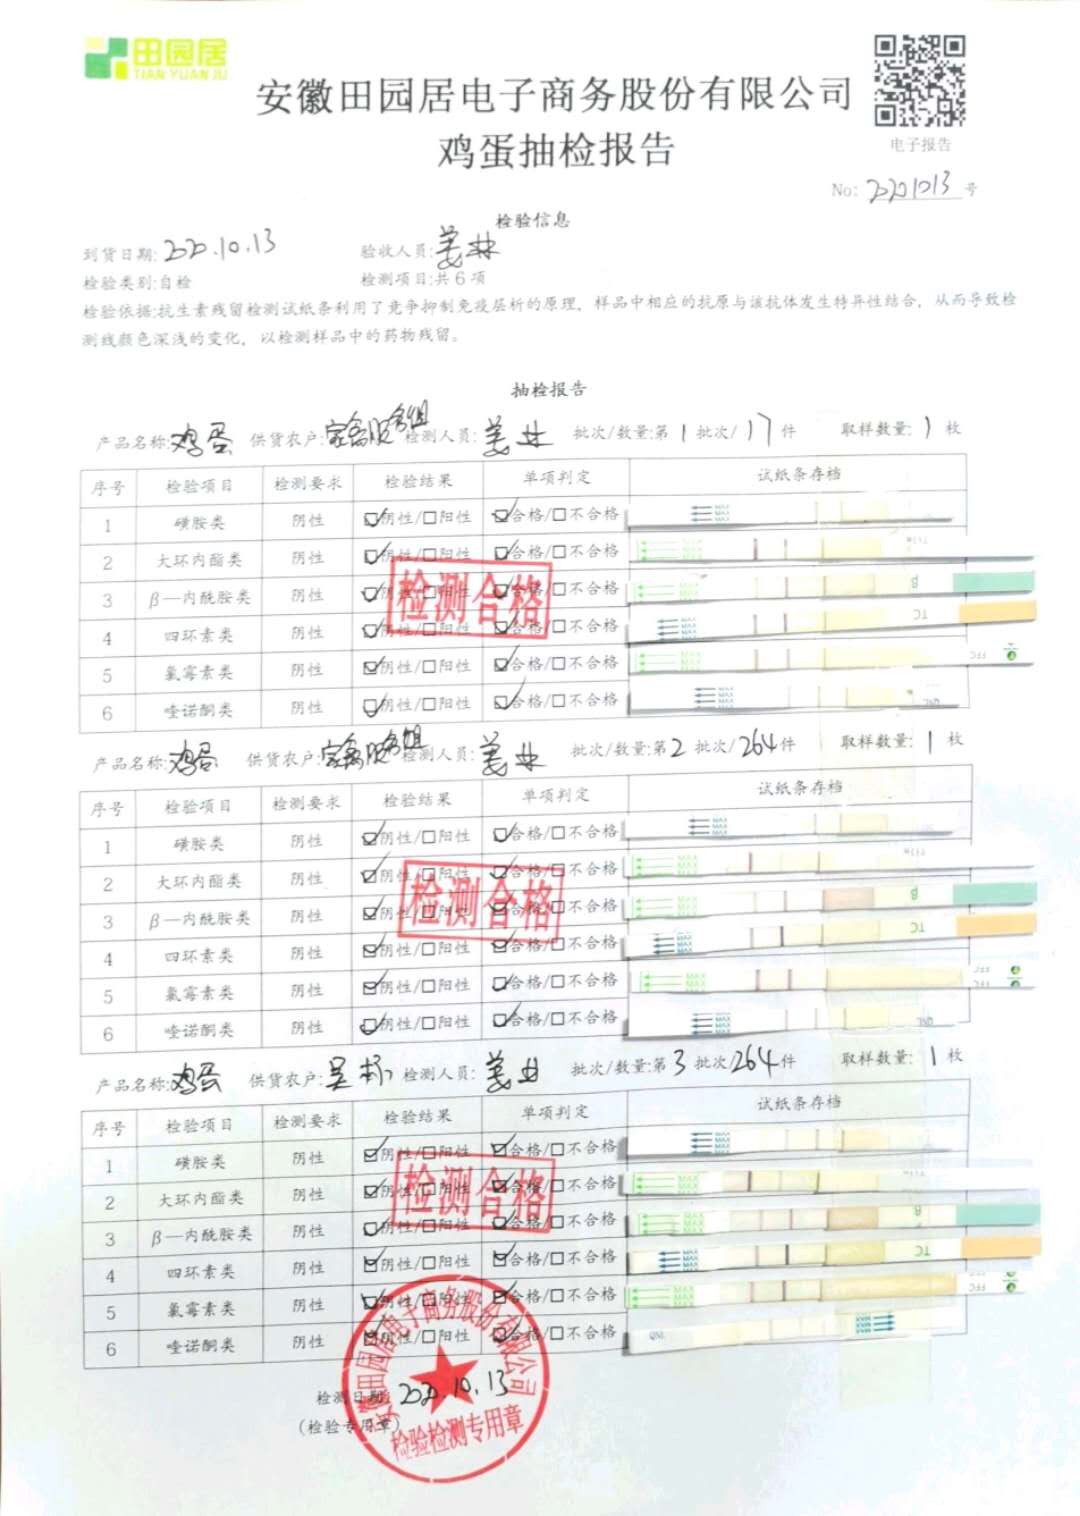 田园居
TIAN YUAN JU
安徽田园居电子商务股份有限公司
鸡蛋抽检报告
电子报告
No: 20201013 号
检验信息
到货日期: 2020.10.13 验收人员:
检验类别:自检 检测项目:共6项
检验依据:抗生素残留检测试纸条利用了竞争抑制免疫层析的原理，样品中相应的抗原与该抗体发生特异性结合，从而导致检
测线颜色深浅的变化，以检测样品中的药物残留。
抽检报告
产品名称:鸡蛋 供货农户:家禽服务组 检测人员: 批次/数量:第1批次/17件 取样数量:1枚
序号 检验项目 检测要求 检验结果 单项判定 试纸条存档
1 磺胺类 阴性 ☑阴性/□阳性 ☑合格/□不合格 MAX
2 大环内酯类 阴性 ☑阴性/□阳性 ☑合格/□不合格 MAX
3 β—内酰胺类 阴性 ☑阴性/□阳性 ☑合格/□不合格 MAX β
4 四环素类 阴性 ☑阴性/□阳性 ☑合格/□不合格 MAX TC
5 氯霉素类 阴性 ☑阴性/□阳性 ☑合格/□不合格 MAX FFC
6 喹诺酮类 阴性 ☑阴性/□阳性 ☑合格/□不合格 MAX QNL
检测合格
产品名称:鸡蛋 供货农户:家禽服务组 检测人员: 批次/数量:第2批次/264件 取样数量:1枚
序号 检验项目 检测要求 检验结果 单项判定 试纸条存档
1 磺胺类 阴性 ☑阴性/□阳性 ☑合格/□不合格 MAX
2 大环内酯类 阴性 ☑阴性/□阳性 ☑合格/□不合格 MAX
3 β—内酰胺类 阴性 ☑阴性/□阳性 ☑合格/□不合格 MAX β
4 四环素类 阴性 ☑阴性/□阳性 ☑合格/□不合格 MAX TC
5 氯霉素类 阴性 ☑阴性/□阳性 ☑合格/□不合格 MAX FFC
6 喹诺酮类 阴性 ☑阴性/□阳性 ☑合格/□不合格 MAX QNL
检测合格
产品名称:鸡蛋 供货农户: 检测人员: 批次/数量:第3批次/264件 取样数量:1枚
序号 检验项目 检测要求 检验结果 单项判定 试纸条存档
1 磺胺类 阴性 ☑阴性/□阳性 ☑合格/□不合格 MAX
2 大环内酯类 阴性 ☑阴性/□阳性 ☑合格/□不合格 MAX
3 β—内酰胺类 阴性 ☑阴性/□阳性 ☑合格/□不合格 MAX β
4 四环素类 阴性 ☑阴性/□阳性 ☑合格/□不合格 MAX TC
5 氯霉素类 阴性 ☑阴性/□阳性 ☑合格/□不合格 MAX FFC
6 喹诺酮类 阴性 ☑阴性/□阳性 ☑合格/□不合格 QNL MAX
检测合格
检测日期: 2020.10.13
(检验专用章)
安徽田园居电子商务股份有限公司
检验检测专用章